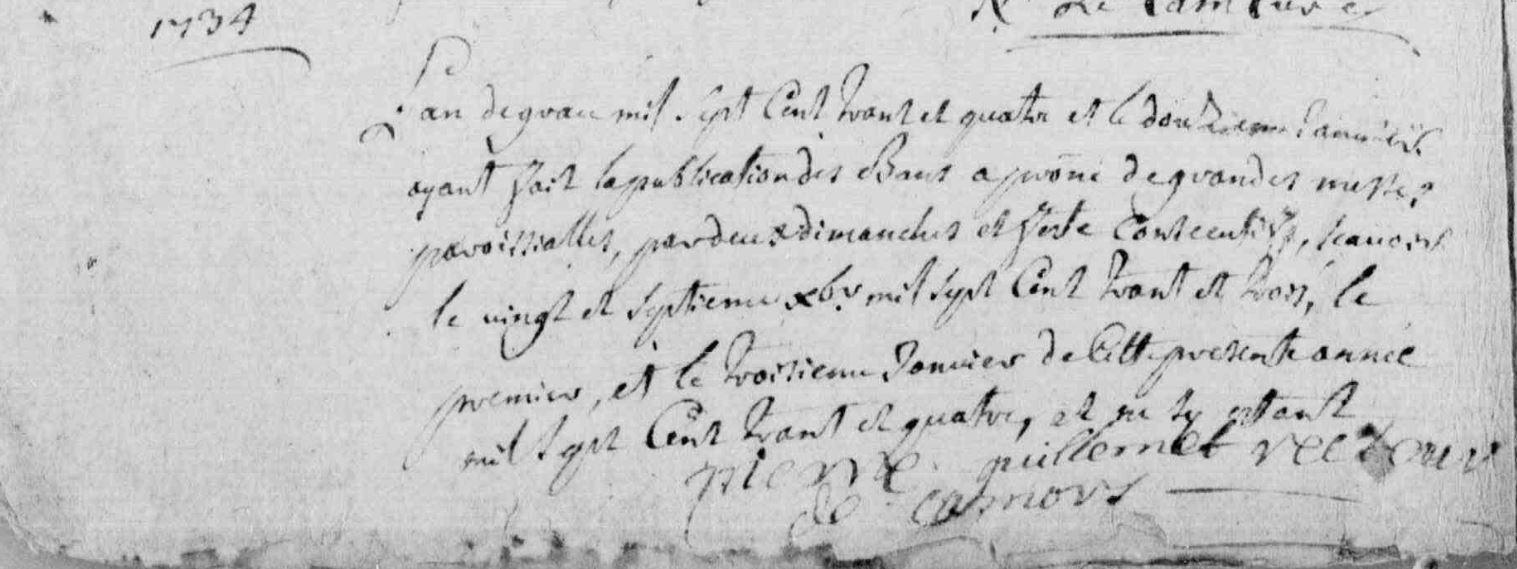 1734
L'an de grace mil sept Cent trant et quatre et le douzieme Januier
ayant fait la publication des Bans a prone de grandes messes
paroissialles, par deux dimanches et feste Consecutifs, scauoir
le uingt et septieme xbr mil sept Cent trant et trois, le
premier, et le troisieme Januier de Cette presente année
mil sept Cent trant et quatre, et ne sy estant
pierre guillemet recteur
de camors